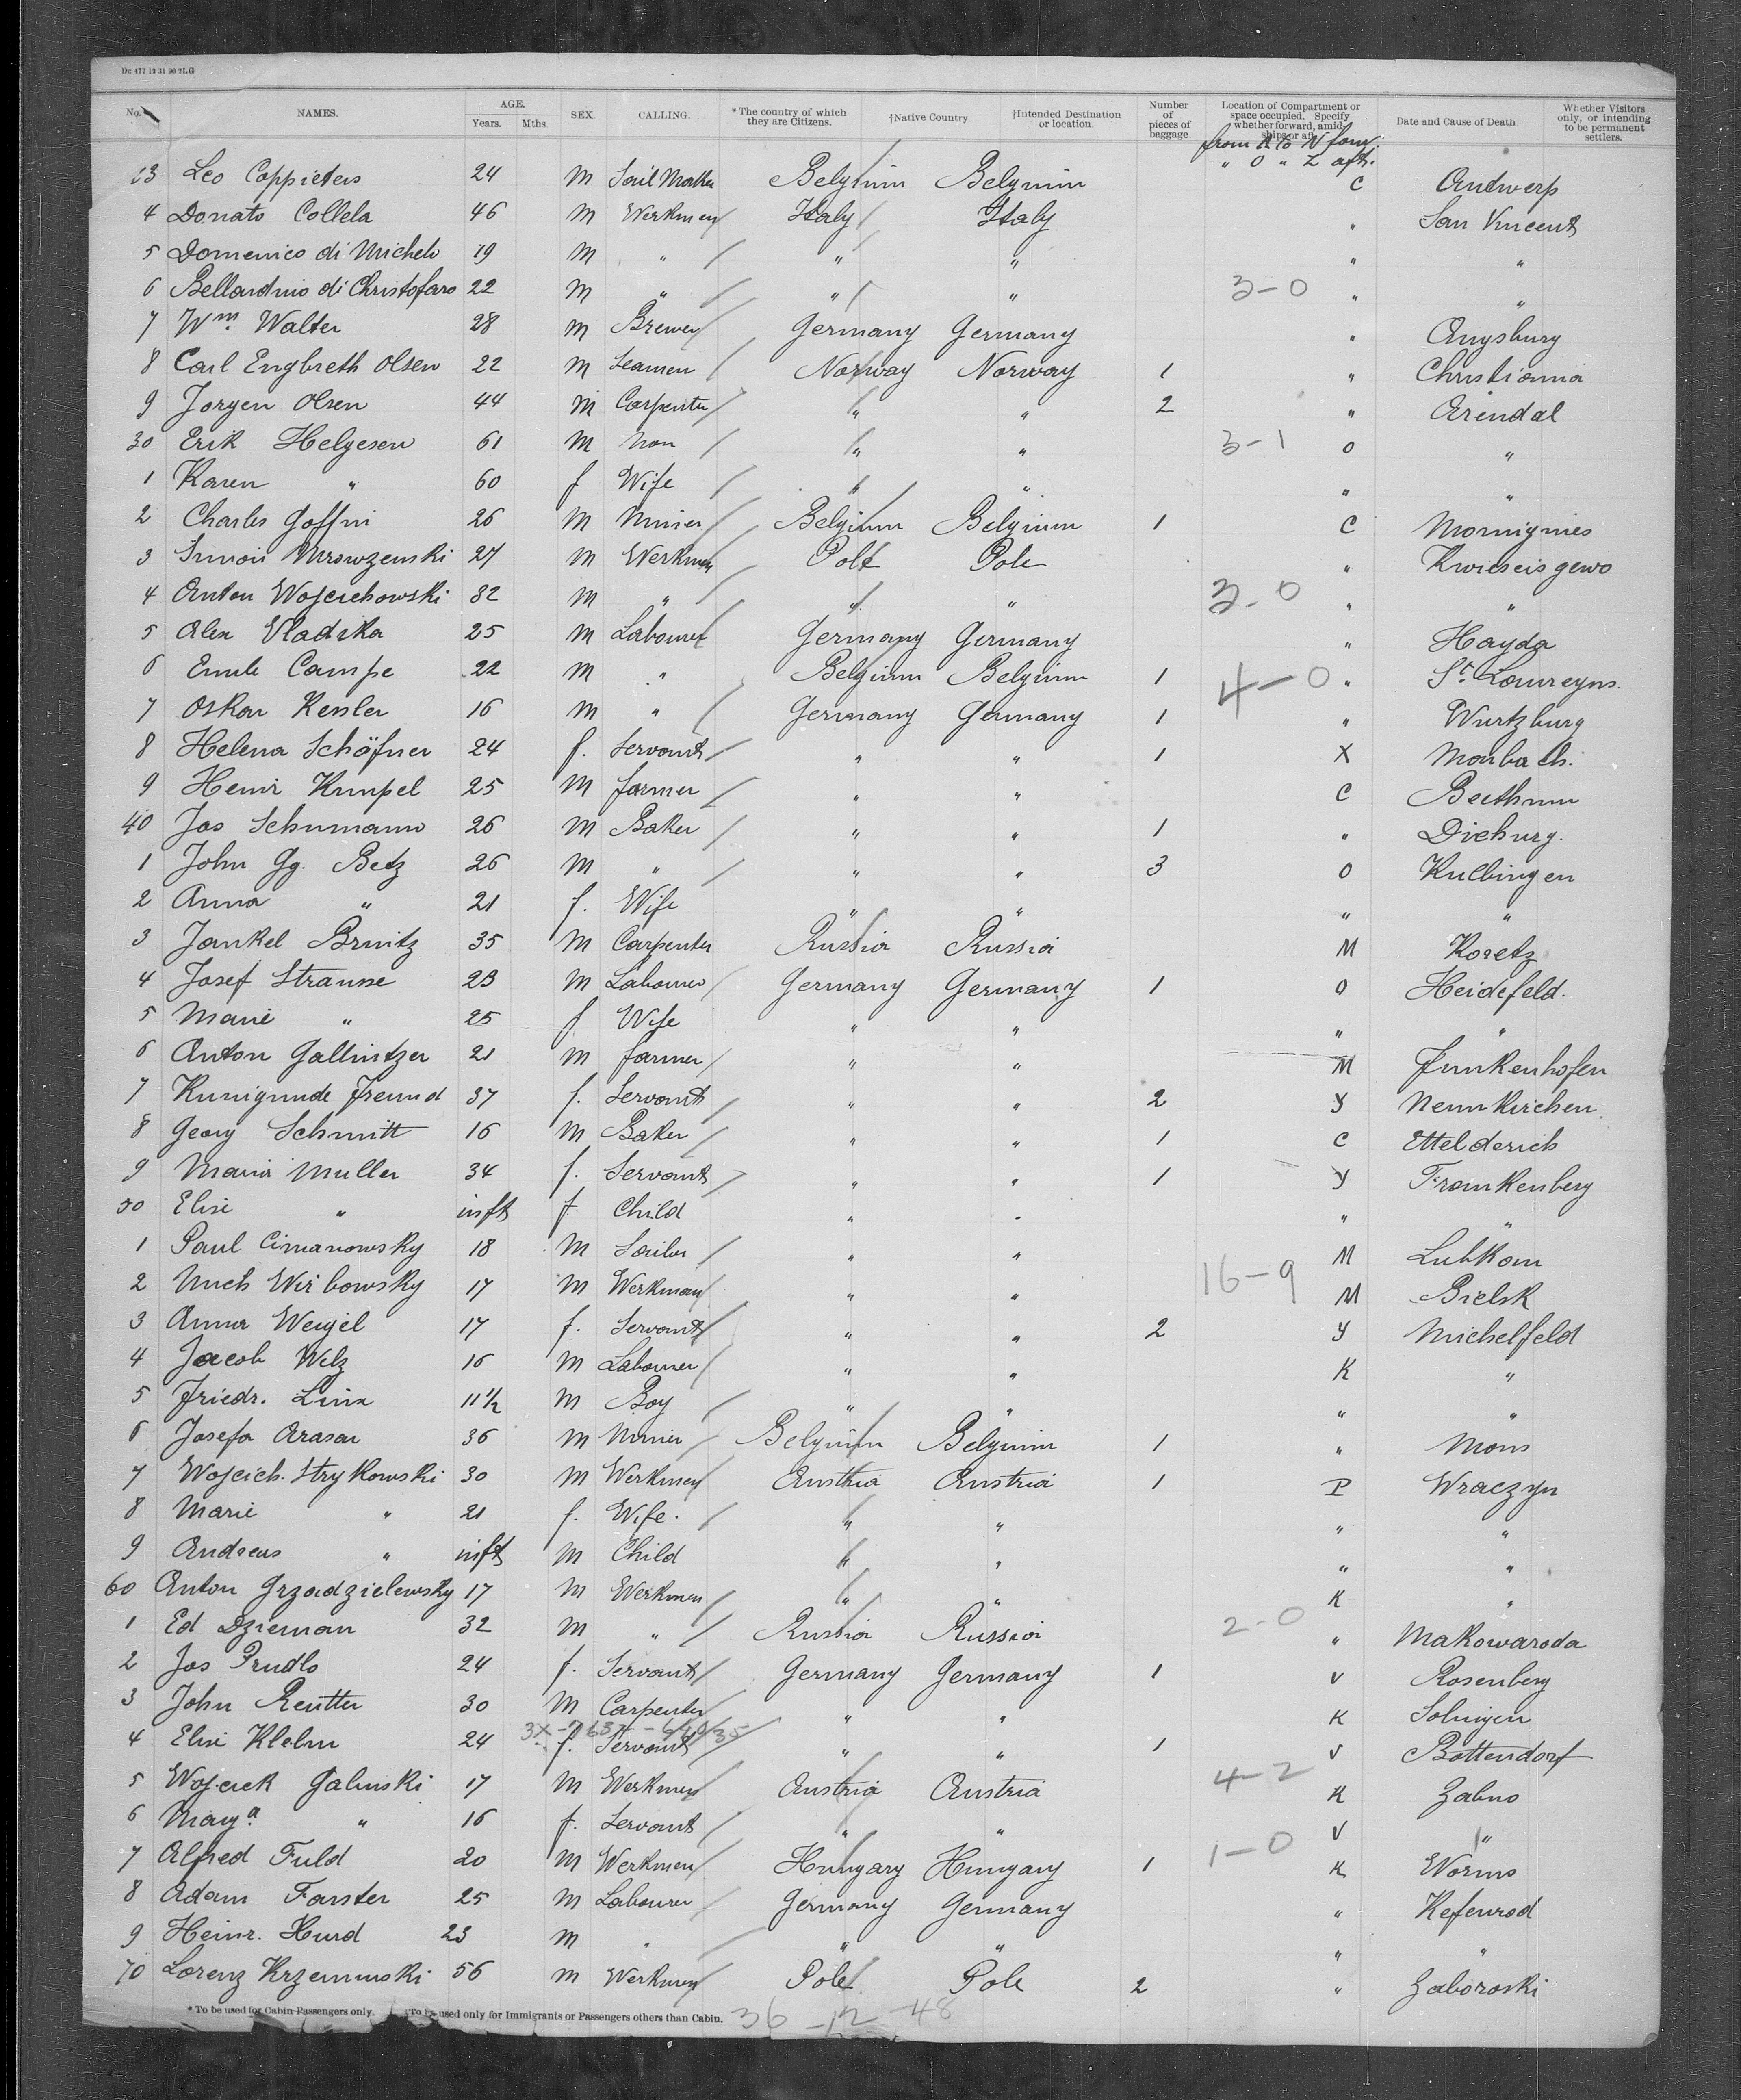 De 477 12 31 90 2LG
No. NAMES. AGE. Years. Mths. SEX. CALLING. * The country of which they are Citizens. †Native Country. †Intended Destination or location. Number of pieces of baggage Location of Compartment or space occupied. Specify whether forward, amidships or aft. Date and Cause of Death. Whether Visitors only, or intending to be permanent settlers.
from A to N forw.
" O " Z aft.
23 Leo Coppieters 24 M Sail Maker Belgium Belgium C Antwerp
4 Donato Collela 46 M Werkmen Italy Italy " San Vincent
5 Domenico di Michele 19 M " " " " "
6 Bellardino di Christofaro 22 M " " " 3-0 " "
7 Wm. Walter 28 M Brewer Germany Germany " Augsburg
8 Carl Engbreth Olsen 22 M Seamen Norway Norway 1 " Christiania
9 Jorgen Olsen 44 M Carpenter " " 2 " Arendal
30 Erik Helgesen 61 M Non " " 3-1 O "
1 Karen " 60 f Wife " " " "
2 Charles Goffin 26 M Minier Belgium Belgium 1 C Momignies
3 Mrowzenski 27 M Werkmen Pole Pole "
4 Anton Wojcechowski 32 M " " " 2-0 " "
5 Alex Vladika 25 M Labourer Germany Germany " Hayda
6 Emile Campe 22 M " Belgium Belgium 1 4-0 " St. Lowreyns.
7 Oskar Kessler 16 M " Germany Germany 1 " Wurtzburg
8 Helena Schöfner 24 f. Servant " " 1 X Monbach.
9 Heinr Kumpel 25 M farmer " " C
40 Jos Schumann 26 M Baker " " 1 " Dieburg.
1 John Gg. Betz 26 M " " " 3 O Kulbingen
2 Anna " 21 f. Wife " " " "
3 Jankel Brnitz 35 M Carpenter Russia Russia M Koretz
4 Josef Strausse 23 M Labourer Germany Germany 1 O Heidefeld.
5 Marie " 25 f Wife " " " "
6 Anton Gallintzer 21 M farmer " " M Junkenhofen
7 Kunigunde Freund 37 f. Servant " " 2 Y Neunkirchen
8 Georg Schmitt 16 M Baker " " 1 C Ettelderich
9 Maria Muller 34 f. Servant " " 1 Y Frankenberg
50 Elise " inft f Child " " " "
1 Paul Cimanowsky 18 M Sailor " " M Lubkom
2 Mich Wirbowsky 17 M Werkman " " 16-9 M Bielsk
3 Anna Weigel 17 f. Servant " " 2 Y Michelfeld
4 Jacob Welz 16 M Labourer " " K "
5 Friedr. Linx 11 1/2 M Boy " " " "
6 Josefa Arasar 36 M Minier Belgium Belgium 1 " Mons
7 Wojcich. Strykowski 30 M Werkmen Austria Austria 1 P Wraczyn
8 Marie " 21 f. Wife. " " " "
9 Andreas " inft M Child " " " "
60 Anton Grzadzielewsky 17 M Werkmen " " K "
1 Ed Dzieman 32 M " Russia Russia 2-0 " Makowaroda
2 Jos Prudlo 24 f. Servant Germany Germany 1 V Rosenberg
3 John Reutter 30 M Carpenter " " K Solingen
4 Elise Klelm 24 f. Servant " " 1 V Bottendorf
5 Wojcick Galinski 17 M Werkmen Austria Austria 4-2 K Zabno
6 Marya " 16 f. Servant " " V "
7 Alfred Fuld 20 M Werkmen Hungary Hungary 1 1-0 K Worms
8 Adam Farster 25 M Labourer Germany Germany " Kefenrod
9 Heinr. Hurd 23 M " " " " "
70 Lorenz Krzeminski 56 M Werkmen Pole Pole 2 " Zaboroski
* To be used for Cabin Passengers only. †To be used only for Immigrants or Passengers others than Cabin.
36 -12 -48